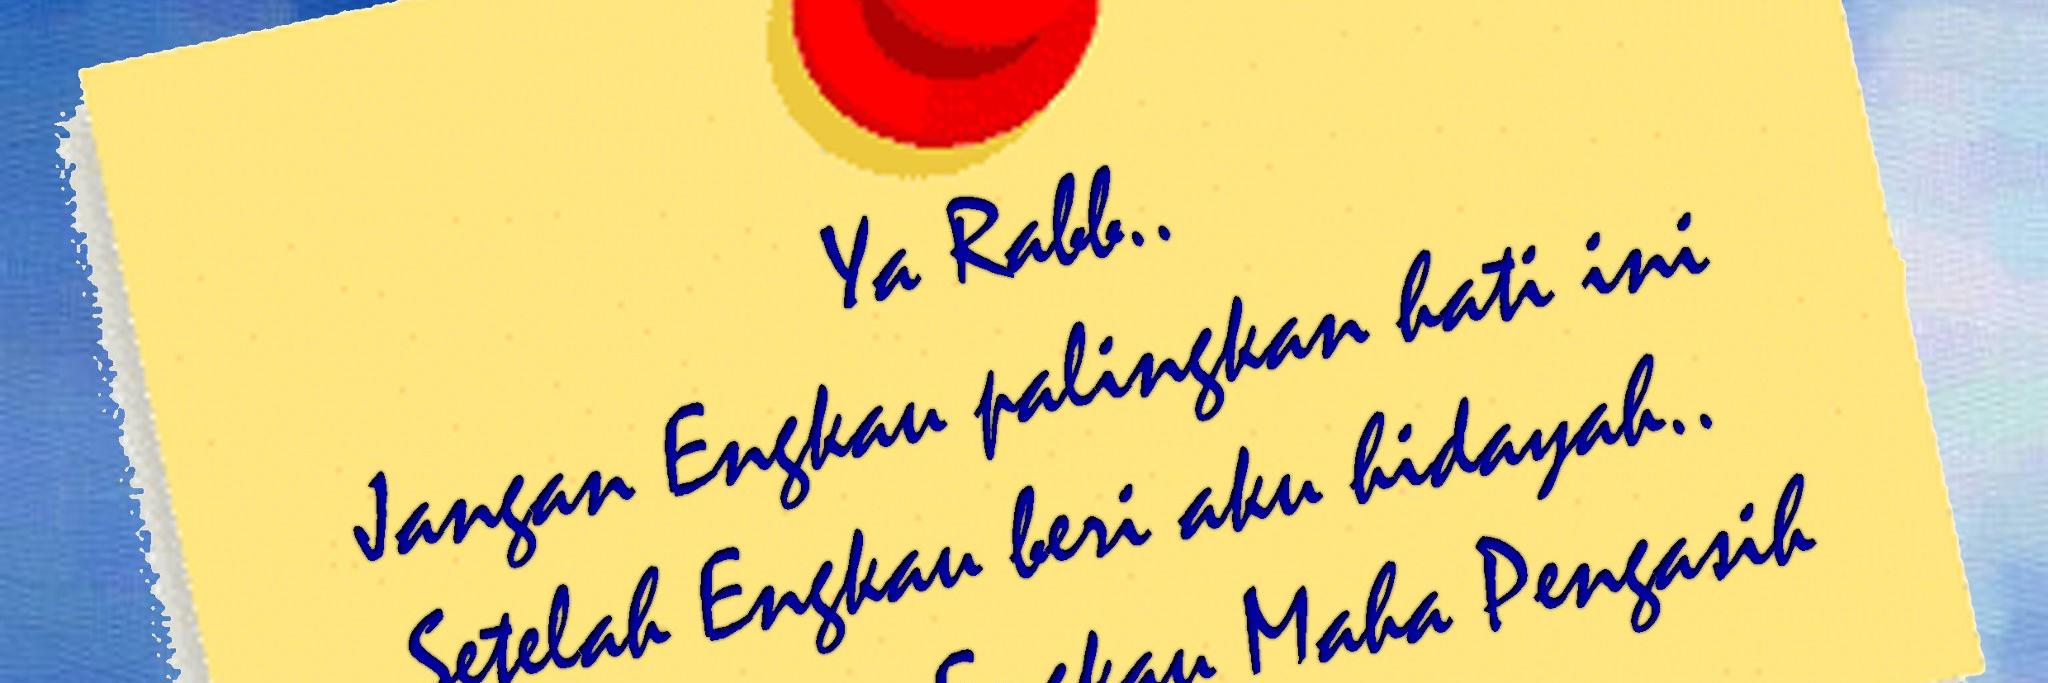 Ya Rabb..
Jangan Engkau palingkan hati ini
Setelah Engkau beri aku hidayah..
Engkau Maha Pengasih